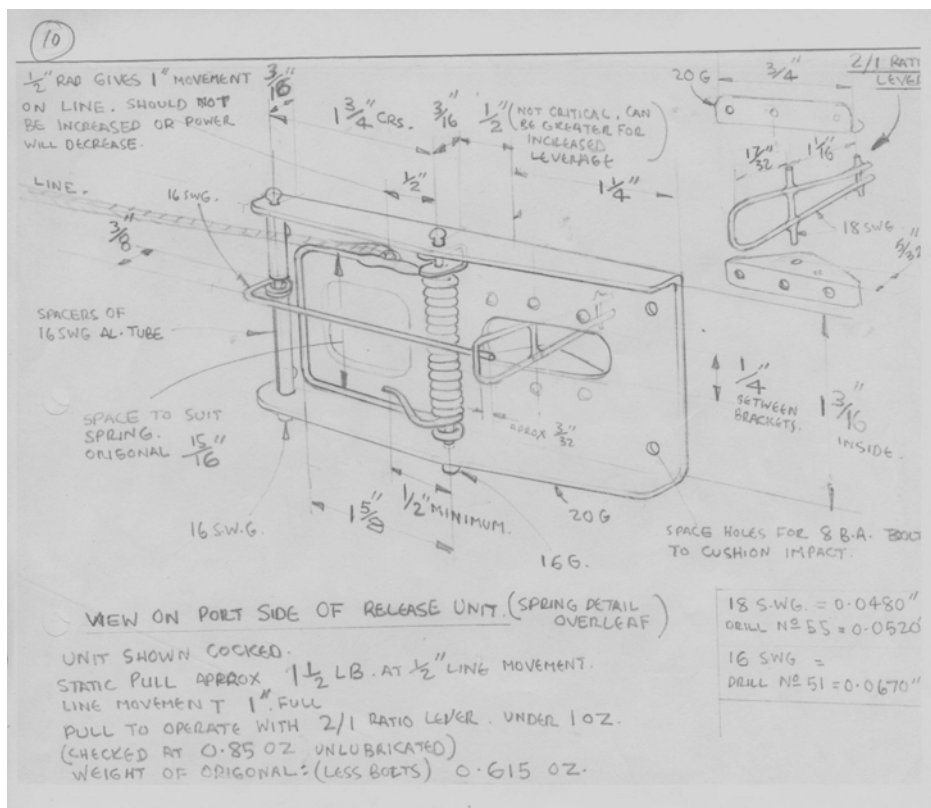 10
1/2" RAD GIVES 1" MOVEMENT
ON LINE. SHOULD NOT
BE INCREASED OR POWER
WILL DECREASE.
3/16"
1 3/4" CRS.
3/16"
1/2" (NOT CRITICAL, CAN
BE GREATER FOR
INCREASED
LEVERAGE)
20G
3/4"
2/1 RATI
LEVE
1 1/16"
LINE.
16 SWG.
1/2"
1 1/4"
18 SWG.
5/32"
3/8"
SPACERS OF
16 SWG AL. TUBE
SPACE TO SUIT
SPRING.
ORIGONAL 15/16"
APROX 3/32"
1/4"
BETWEEN
BRACKETS.
1 3/16"
INSIDE.
16 S.W.G.
1 5/8"
1/2" MINIMUM.
16G.
20G
SPACE HOLES FOR 8 B.A. BOLT
TO CUSHION IMPACT.
VIEW ON PORT SIDE OF RELEASE UNIT. (SPRING DETAIL
OVERLEAF)
UNIT SHOWN COCKED.
STATIC PULL APPROX 1 1/2 LB. AT 1/2" LINE MOVEMENT.
LINE MOVEMENT 1". FULL
PULL TO OPERATE WITH 2/1 RATIO LEVER. UNDER 1 OZ.
(CHECKED AT 0.85 OZ UNLUBRICATED)
WEIGHT OF ORIGONAL: (LESS BOLTS) 0.615 OZ.
18 S.WG. = 0.0480"
DRILL Nº 55 = 0.0520"
16 SWG =
DRILL Nº 51 = 0.0670"